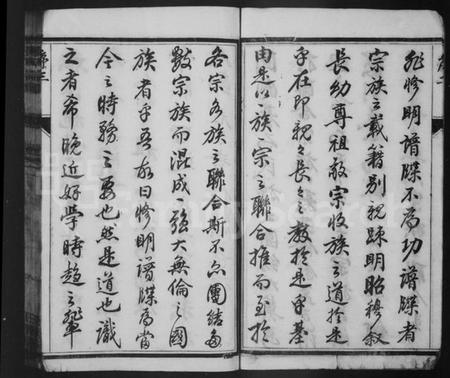 非修明譜牒不為功譜牒者
宗族之載籍別親疎明昭穆敘
長幼尊祖敬宗收族之道於是
乎在即親親長長之教於是乎基
由是以一族一宗之聯合推而至於
各宗各族之聯合斯不亦團結多
數宗族而混成一強大無倫之國
族者乎吾故曰修明譜牒為當
今之時務之要也然是道也識
之者希晚近好學時趨之輩
序三